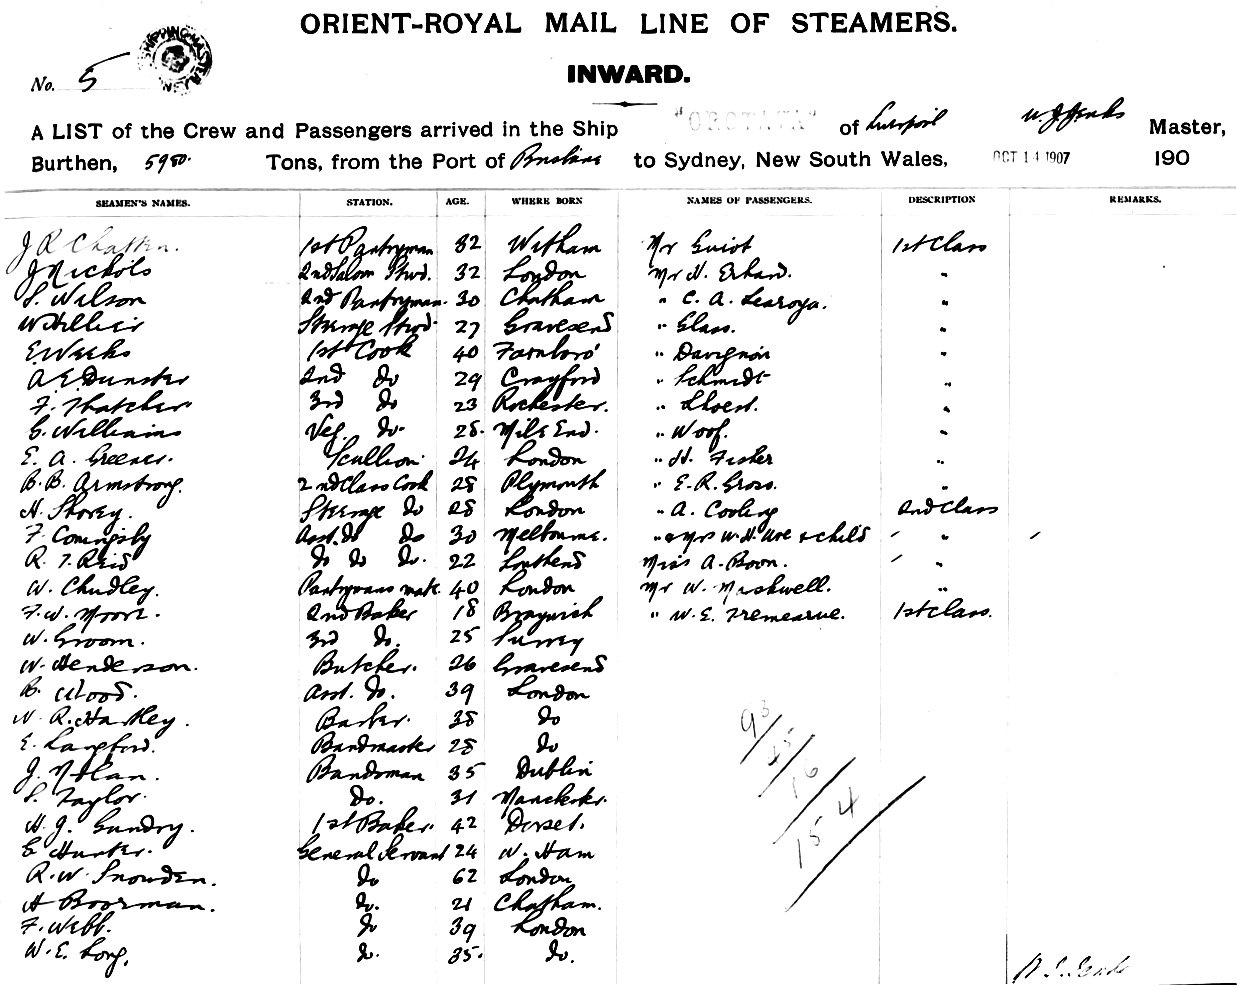 ORIENT-ROYAL MAIL LINE OF STEAMERS.
INWARD.
No. 5
A LIST of the Crew and Passengers arrived in the Ship "OROTAVA" of Liverpool W J Jenks Master,
Burthen, 5980. Tons, from the Port of Brisbane to Sydney, New South Wales, OCT 14 1907 190
SEAMEN'S NAMES. STATION. AGE. WHERE BORN NAMES OF PASSENGERS. DESCRIPTION REMARKS.
J R 1st Pantryman 32 Witham Mr Guiot 1st Class
J Nichols 2nd Saloon Stwd. 32 London Mr H. Erhard. "
S. Wilson 2nd Pantryman. 30 Chatham " C. A. Learoyd. "
W Hillier Steerage Stwd. 27 Gravesend " Glass. "
E. Weeks 1st Cook 40 Farnboro' " Davignon "
A. E. Dunster 2nd do 29 Crayford " Schmidt "
F. Thatcher 3rd do 23 Rochester. " "
G. Williams Veg. do. 28. Mile End. " Woof. "
E. A. Greener. Scullion 24 London " H. Fisher "
B. B. Armstrong. 2nd Class Cook 28 Plymouth " E. R. Gross. "
H. Storey. Steerage do 28 London " A. Cooling 2nd Class
F. Coningsby Asst. do do 30 Melbourne. " & Mrs W. H. Ure & child "
R. T. Reid do do do. 22 Southend Miss A. Boon. "
W. Chudley. Pantrymans mate. 40 London Mr W. Maskwell. "
F. W. Moore. 2nd Baker 18 " W. E. Tremearne. 1st Class.
W. Groom. 3rd do. 25 Surrey
W. Henderson. Butcher. 26 Gravesend
B. Wood. Asst. do. 39 London
W. R. Hartley. Barber. 38 do
E. Langford. Bandmaster 28 do
J. Nolan. Bandsman 35 Dublin
S. Taylor. do. 31 Manchester.
H. J. Gundry. 1st Baker. 42 Dorset.
E Hunter. General Servant 24 W. Ham
R. W. Snowden. do 62 London
A Boorman. do. 21 Chatham.
F. Webb. do 39 London
W. E. Long. do. 35. do.
93
45
16
154
W. J. Jenks